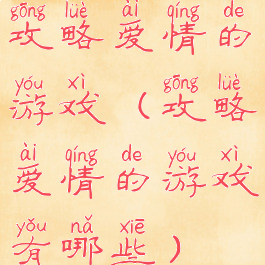 gōng lüè ài qíng de
攻略爱情的
yóu xì gōng lüè
游戏（攻略
ài qíng de yóu xì
爱情的游戏
yǒu nǎ xiē
有哪些）